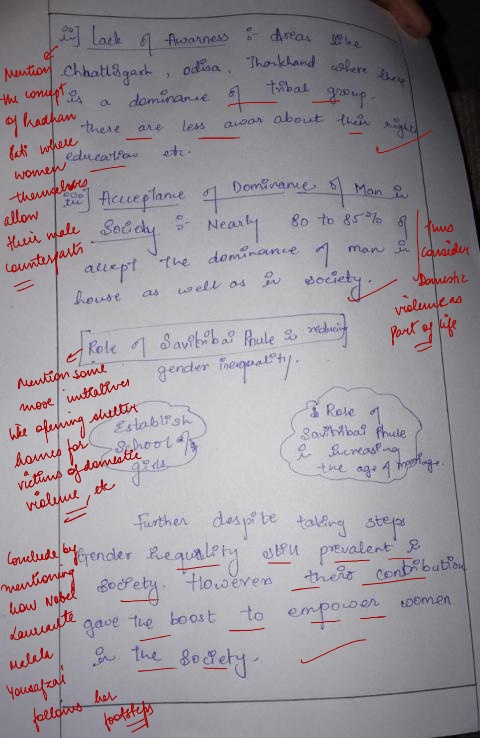 iii] Lack of Awarness :- Areas like
Chhattisgarh, odisa, Jharkhand where there
is a dominance of tribal group.
there are less awar about their rights
education etc.
Mention
the concept
of Pradhan
Pati where
women
themselves
allow
their male
counterparts
iv] Acceptance of Dominance of Man in
Society :- Nearly 80 to 85% of
accept the dominance of man in
house as well as in society.
thus
consider
Domestic
violence as
part of life
Role of Savitribai Phule in reducing
gender inequality.
Mention some
more initiatives
like opening shelter
homes for
victims of domestic
violence, etc
Establish
School of
girls
Role of
Savitribai Phule
in increasing
the age of marriage.
Further despite taking steps
Gender inequality still prevalent in
society. However their contribution
gave the boost to empower women
in the society.
Conclude by
mentioning
how Nobel
Laureate
Malala
Yousafzai
follows her
footsteps